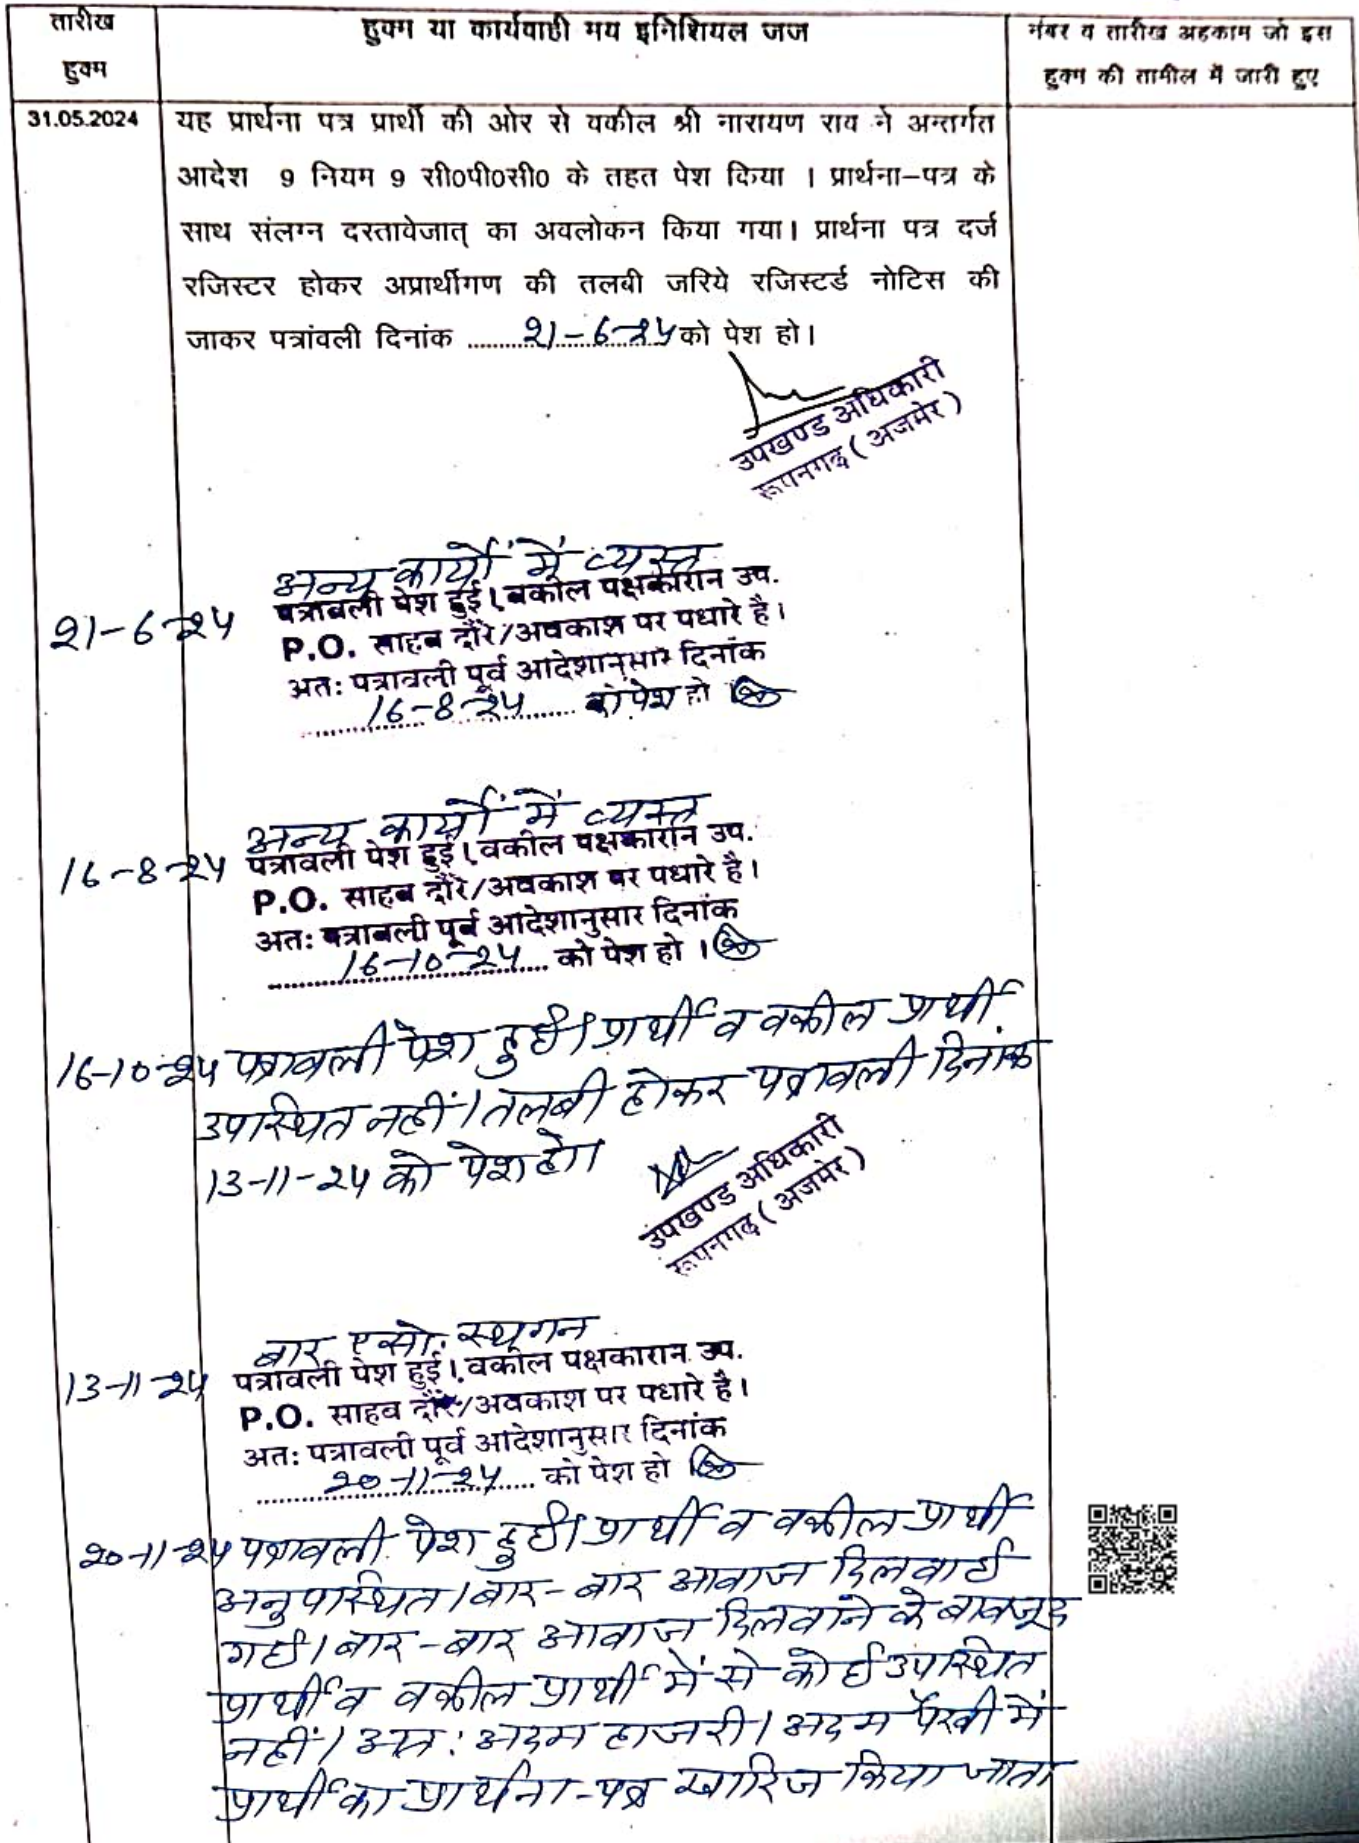 तारीख
हुक्म
हुक्म या कार्यवाही मय इनिशियल जज
नंबर व तारीख अहकाम जो इस
हुक्म की तामील में जारी हुए
31.05.2024
यह प्रार्थना पत्र प्रार्थी की ओर से वकील श्री नारायण राव ने अन्तर्गत
आदेश 9 नियम 9 सी0पी0सी0 के तहत पेश किया । प्रार्थना-पत्र के
साथ संलग्न दस्तावेजात् का अवलोकन किया गया। प्रार्थना पत्र दर्ज
रजिस्टर होकर अप्रार्थीगण की तलबी जरिये रजिस्टर्ड नोटिस की
जाकर पत्रांवली दिनांक ..........21-6-24 को पेश हो।
उपखण्ड अधिकारी
रूपनगढ़ (अजमेर)
अन्य कार्यों में व्यस्त
21-6-24 पत्रावली पेश हुई। वकील पक्षकारान उप.
P.O. साहब दौरे/अवकाश पर पधारे है।
अतः पत्रावली पूर्व आदेशानुसार दिनांक
16-8-24 को पेश हो
अन्य कार्यों में व्यस्त
16-8-24 पत्रावली पेश हुई। वकील पक्षकारान उप.
P.O. साहब दौरे/अवकाश पर पधारे है।
अतः पत्रावली पूर्व आदेशानुसार दिनांक
16-10-24 को पेश हो ।
16-10-24 पत्रावली पेश हुई। प्रार्थी व वकील प्रार्थी
उपस्थित नहीं। तलबी होकर पत्रावली दिनांक
13-11-24 को पेश हो।
उपखण्ड अधिकारी
रूपनगढ़ (अजमेर)
बार एसो. स्थगन
13-11-24 पत्रावली पेश हुई। वकील पक्षकारान उप.
P.O. साहब दौरे/अवकाश पर पधारे है।
अतः पत्रावली पूर्व आदेशानुसार दिनांक
20-11-24 को पेश हो
20-11-24 पत्रावली पेश हुई। प्रार्थी व वकील प्रार्थी
अनुपस्थित। बार-बार आवाज दिलवाई
गई। बार-बार आवाज दिलवाने के बावजूद
प्रार्थी व वकील प्रार्थी में से कोई उपस्थित
नहीं। अतः अदम हाजरी। अदम पैरवी में
प्रार्थी का प्रार्थना-पत्र खारिज किया जाता